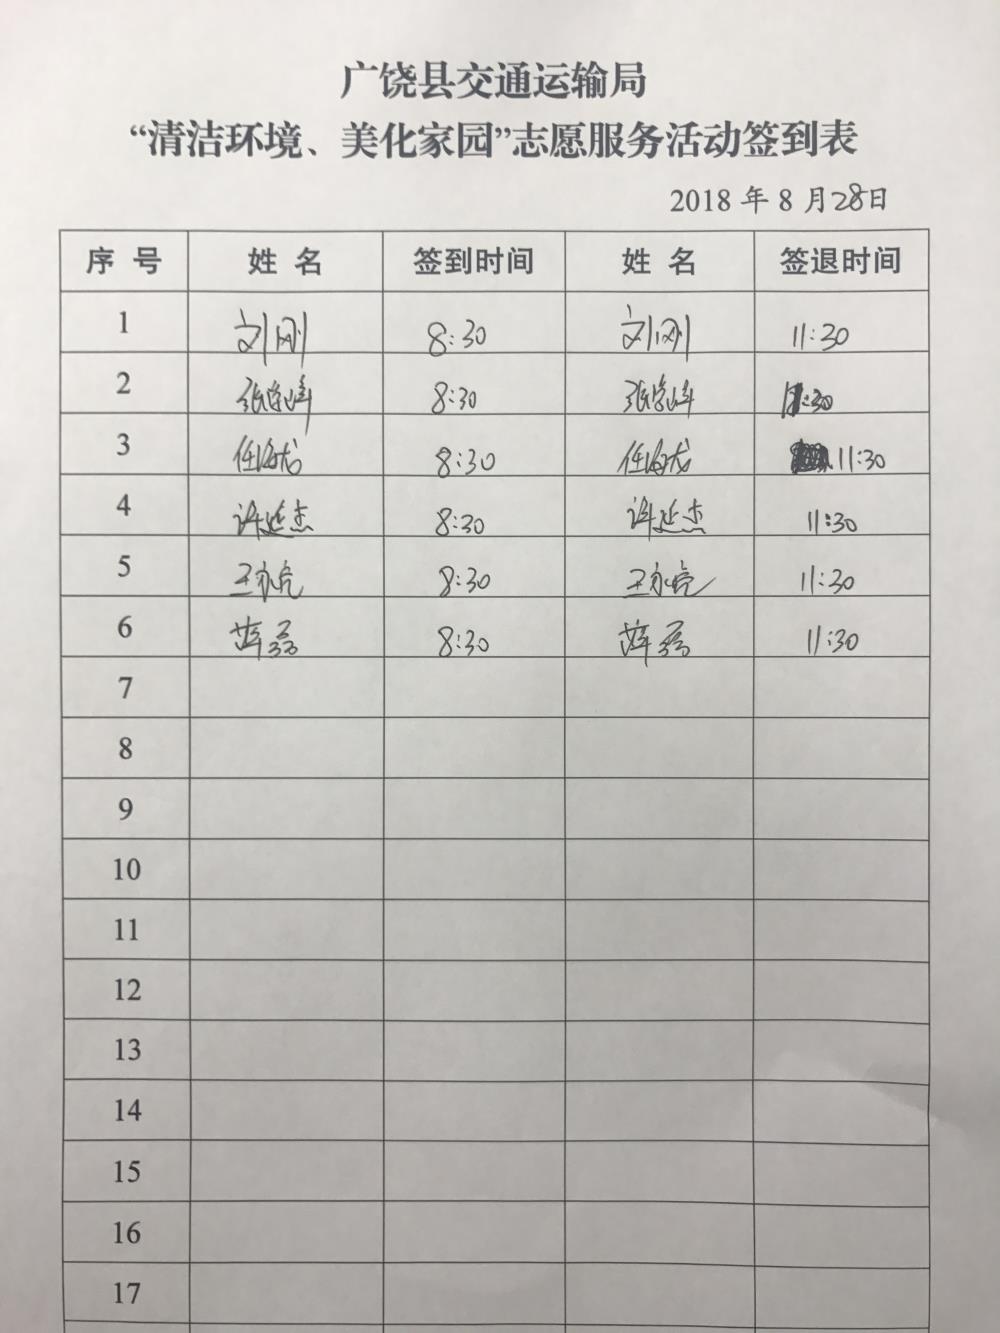 广饶县交通运输局
“清洁环境、美化家园”志愿服务活动签到表
2018 年 8 月28日
序 号 姓 名 签到时间 姓 名 签退时间
1 刘刚 8:30 刘刚 11:30
2 张学峰 8:30 张学峰 11:30
3 任海龙 8:30 任海龙 11:30
4 许延杰 8:30 许延杰 11:30
5 王永亮 8:30 王永亮 11:30
6 薛磊 8:30 薛磊 11:30
7
8
9
10
11
12
13
14
15
16
17